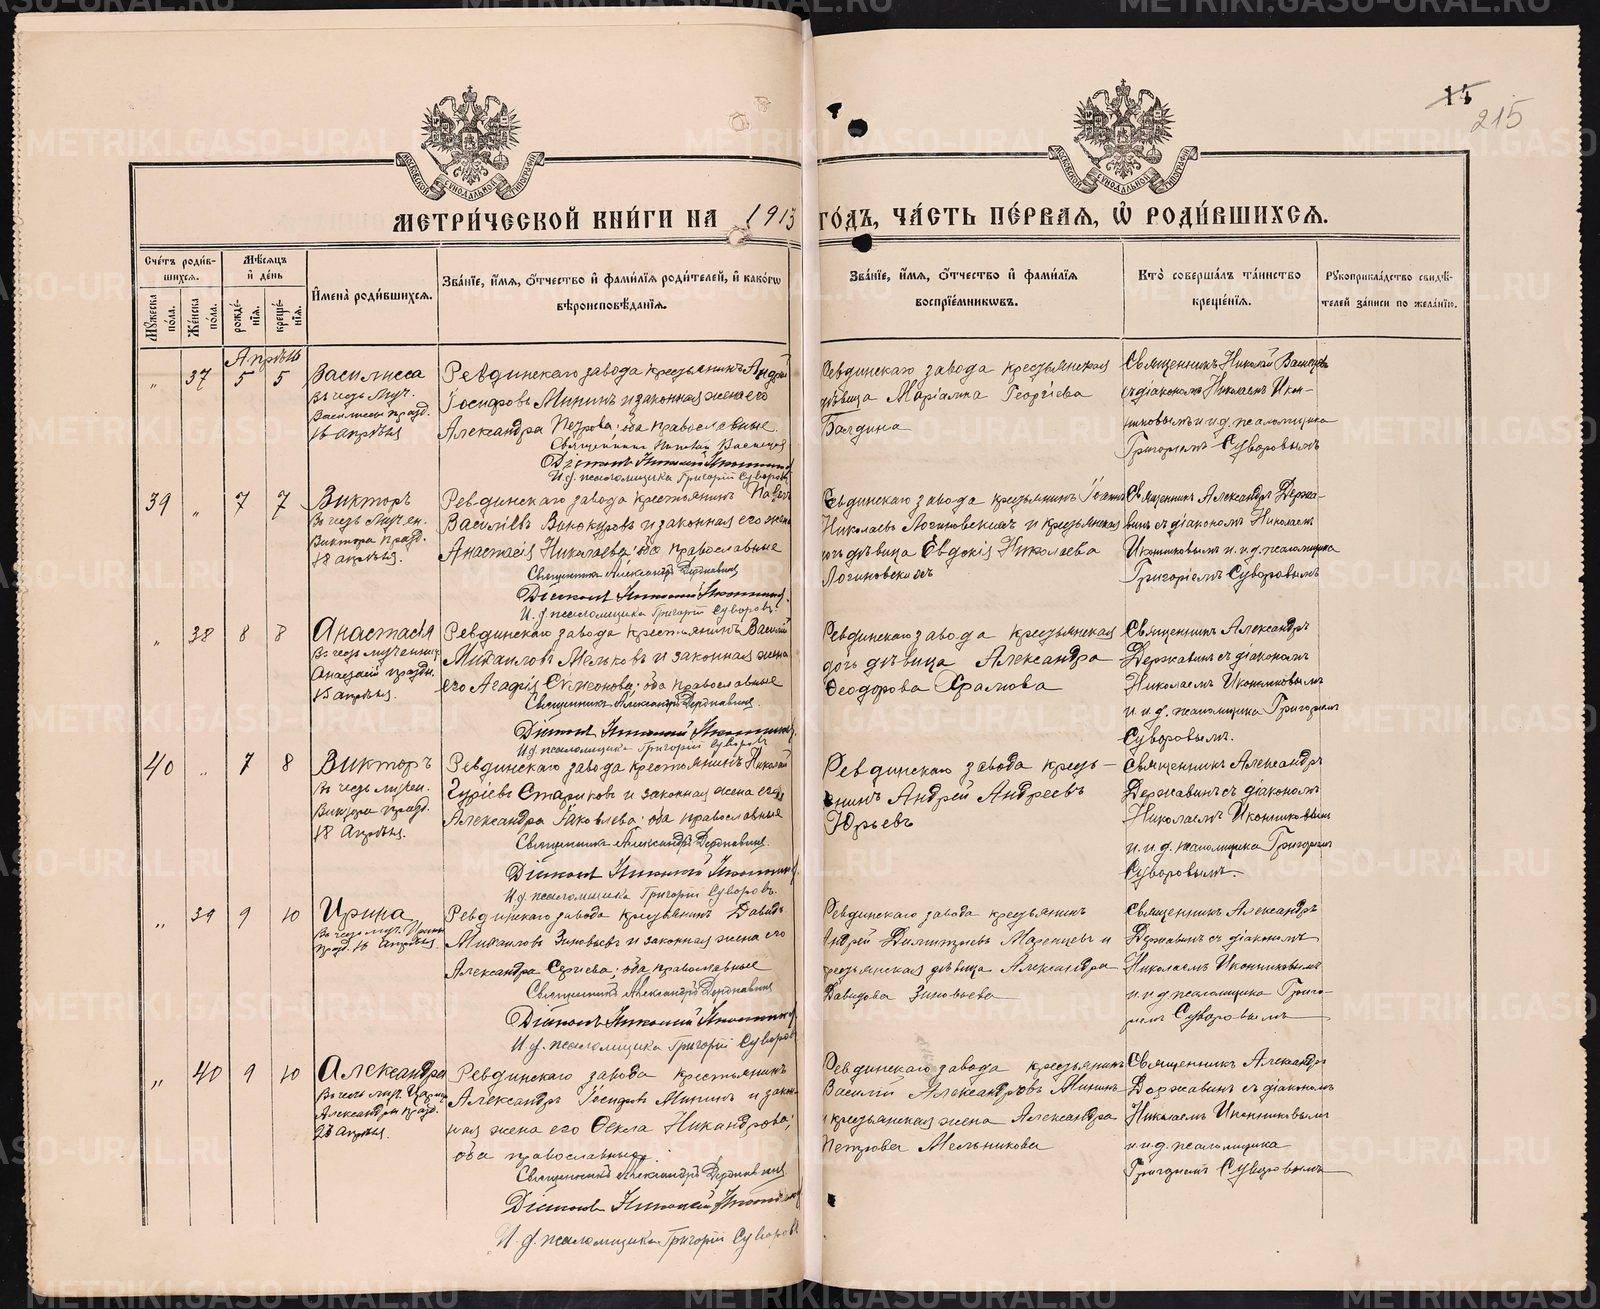 15
215
МОСКОВСКОЙ СѴНОДАЛЬНОЙ ТИПОГРАФІИ
МОСКОВСКОЙ СѴНОДАЛЬНОЙ ТИПОГРАФІИ
МЕТРИ́ЧЕСКОЙ КНИ́ГИ НА 1913 ГО́ДЪ, ЧА́СТЬ ПЕ́РВАЯ, Ѡ҆ РОДИ́ВШИХСЯ.
Сче́тъ роди́в-
шихся.
Мꙋ́жеска по́ла.
Же́нска по́ла.
Мѣ́сяцъ и҆ де́нь
рожде́-
нїя.
креще́-
нїя.
И҆мена̀ роди́вшихся.
Зва́нїе, и҆́мя, ѻ҆́тчество и҆ фами́лїя роди́телей, и҆ како́гѡ
вѣроисповѣ́данїя.
Зва́нїе, и҆́мя, ѻ҆́тчество и҆ фами́лїя
воспрїе́мникѡвъ.
Кто̀ соверша́лъ та́инство
креще́нїя.
Рꙋкоприкла́дство свидѣ́-
телей за́писи по жела́нїю.
Апрѣль
" 37 5 5
Василисса
Въ честь муч.
Василисы празд.
16 апрѣля
Ревдинскаго завода крестьянинъ Андрей
Іосифовъ Мининъ и законная жена его
Александра Петрова; оба православные
Священникъ Николай
Діаконъ Николай Иконниковъ
И. д. псаломщика Григорій Суворовъ
Ревдинскаго завода крестьянская
дѣвица Маріамна Георгіева
Балдина
Священникъ Николай
съ діакономъ Николаемъ Икон-
никовымъ и и.д. псаломщика
Григоріемъ Суворовымъ
39 " 7 7
Викторъ
Въ честь мучен.
Виктора празд.
18 апрѣля.
Ревдинскаго завода крестьянинъ Павелъ
Василіевъ Винокуровъ и законная его жена
Анастасія Николаева; оба православные
Священникъ Александръ Державинъ
Діаконъ Николай Иконниковъ
И. д. псаломщика Григорій Суворовъ
Ревдинскаго завода крестьянинъ Іоаннъ
Николаевъ Логиновскихъ и крестьянская
дочь дѣвица Евдокія Николаева
Логиновскихъ
Священникъ Александръ Держа-
винъ съ діакономъ Николаемъ
Иконниковымъ и и.д. псаломщика
Григоріемъ Суворовымъ
" 38 8 8
Анастасія
Въ честь мученицы
Анастасіи праздн.
15 апрѣля.
Ревдинскаго завода крестьянинъ Василій
Михаиловъ Мальковъ и законная жена
его Агафія Симеонова; оба православные
Священникъ Александръ Державинъ
Діаконъ Николай Иконниковъ
И.д. псаломщика Григорій Суворовъ
Ревдинскаго завода крестьянская
дочь дѣвица Александра
Ѳеодорова Храмова
Священникъ Александръ
Державинъ съ діакономъ
Николаемъ Иконниковымъ
и и.д. псаломщика Григоріемъ
Суворовымъ.
40 " 7 8
Викторъ
въ честь мучен.
Виктора празд.
18 Апрѣля.
Ревдинскаго завода крестьянинъ Николай
Гуріевъ Стариковъ и законная жена его
Александра Іаковлева; оба православные
Священникъ Александръ Державинъ.
Діаконъ Николай Иконниковъ
И.д. псаломщика Григорій Суворовъ.
Ревдинскаго завода кресть-
янинъ Андрей Андреевъ
Юрьевъ
Священникъ Александръ
Державинъ съ діакономъ
Николаемъ Иконниковымъ
и и.д. псаломщика Григоріемъ
Суворовымъ.
" 39 9 10
Ирина
Въ честь муч. Ирины
празд. 16 апрѣля
Ревдинскаго завода крестьянинъ Давидъ
Михаиловъ Зиновьевъ и законная жена его
Александра Сергіева; оба православные
Священникъ Александръ Державинъ
Діаконъ Николай Иконниковъ
И.д. псаломщика Григорій Суворовъ
Ревдинскаго завода крестьянинъ
Андрей Димитріевъ и
крестьянская дѣвица Александра
Давидова Зиновьева
Священникъ Александръ
Державинъ съ діакономъ
Николаемъ Иконниковымъ
и и.д. псаломщика Григо-
ріемъ Суворовымъ
" 40 9 10
Александра
Въ честь муч. Царицы
Александры празд.
23 апрѣля.
Ревдинскаго завода крестьянинъ
Александръ Іосифовъ Мининъ и закон-
ная жена его Ѳекла Никандрова;
оба православные.
Священникъ Александръ Державинъ
Діаконъ Николай Иконниковъ
И. д. псаломщика Григорій Суворовъ
Ревдинскаго завода крестьянинъ
Василій Александровъ Мининъ
и крестьянская жена Александра
Петрова Мельникова
Священникъ Александръ
Державинъ съ діакономъ
Николаемъ Иконниковымъ
и и.д. псаломщика
Григоріемъ Суворовымъ
METRIKI.GASO-URAL.RU